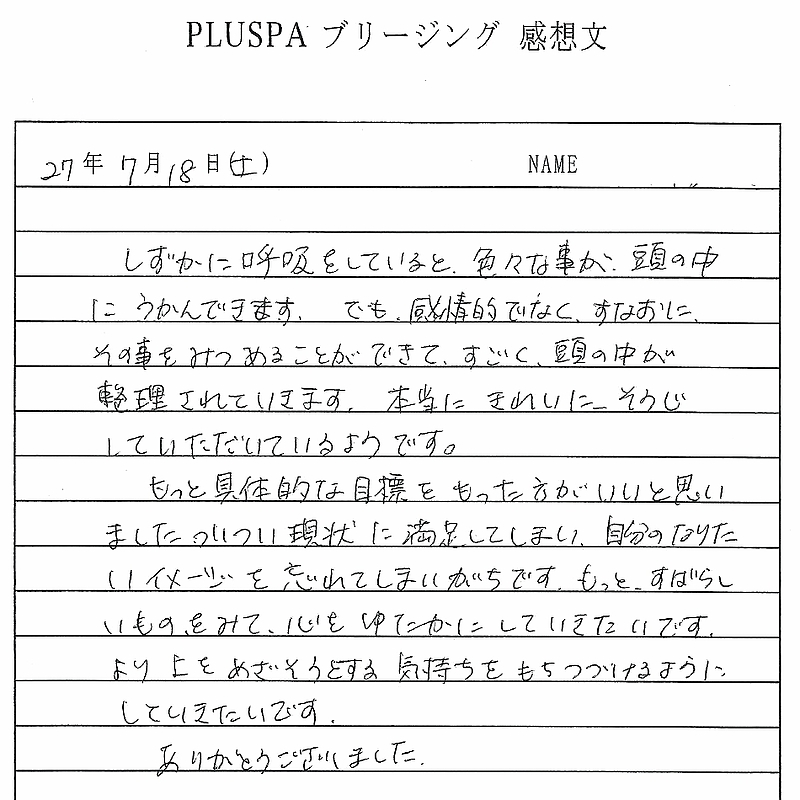 PLUSPA ブリージング 感想文
27年 7月18日(土) NAME
しずかに呼吸をしていると、色々な事が、頭の中
に うかんできます。 でも、感情的でなく、すなおに、
その事をみつめることができて、すごく、頭の中が
整理されていきます。 本当に きれいに そうじ
していただいているようです。
もっと具体的な目標をもった方がいいと思い
ました。ついつい現状に満足してしまい、自分のなりた
いイメージを忘れてしまいがちです。もっと、すばらし
いものをみて、心をゆたかにしていきたいです。
より上をめざそうとする気持ちをもちつづけるように
していきたいです。
ありがとうございました。